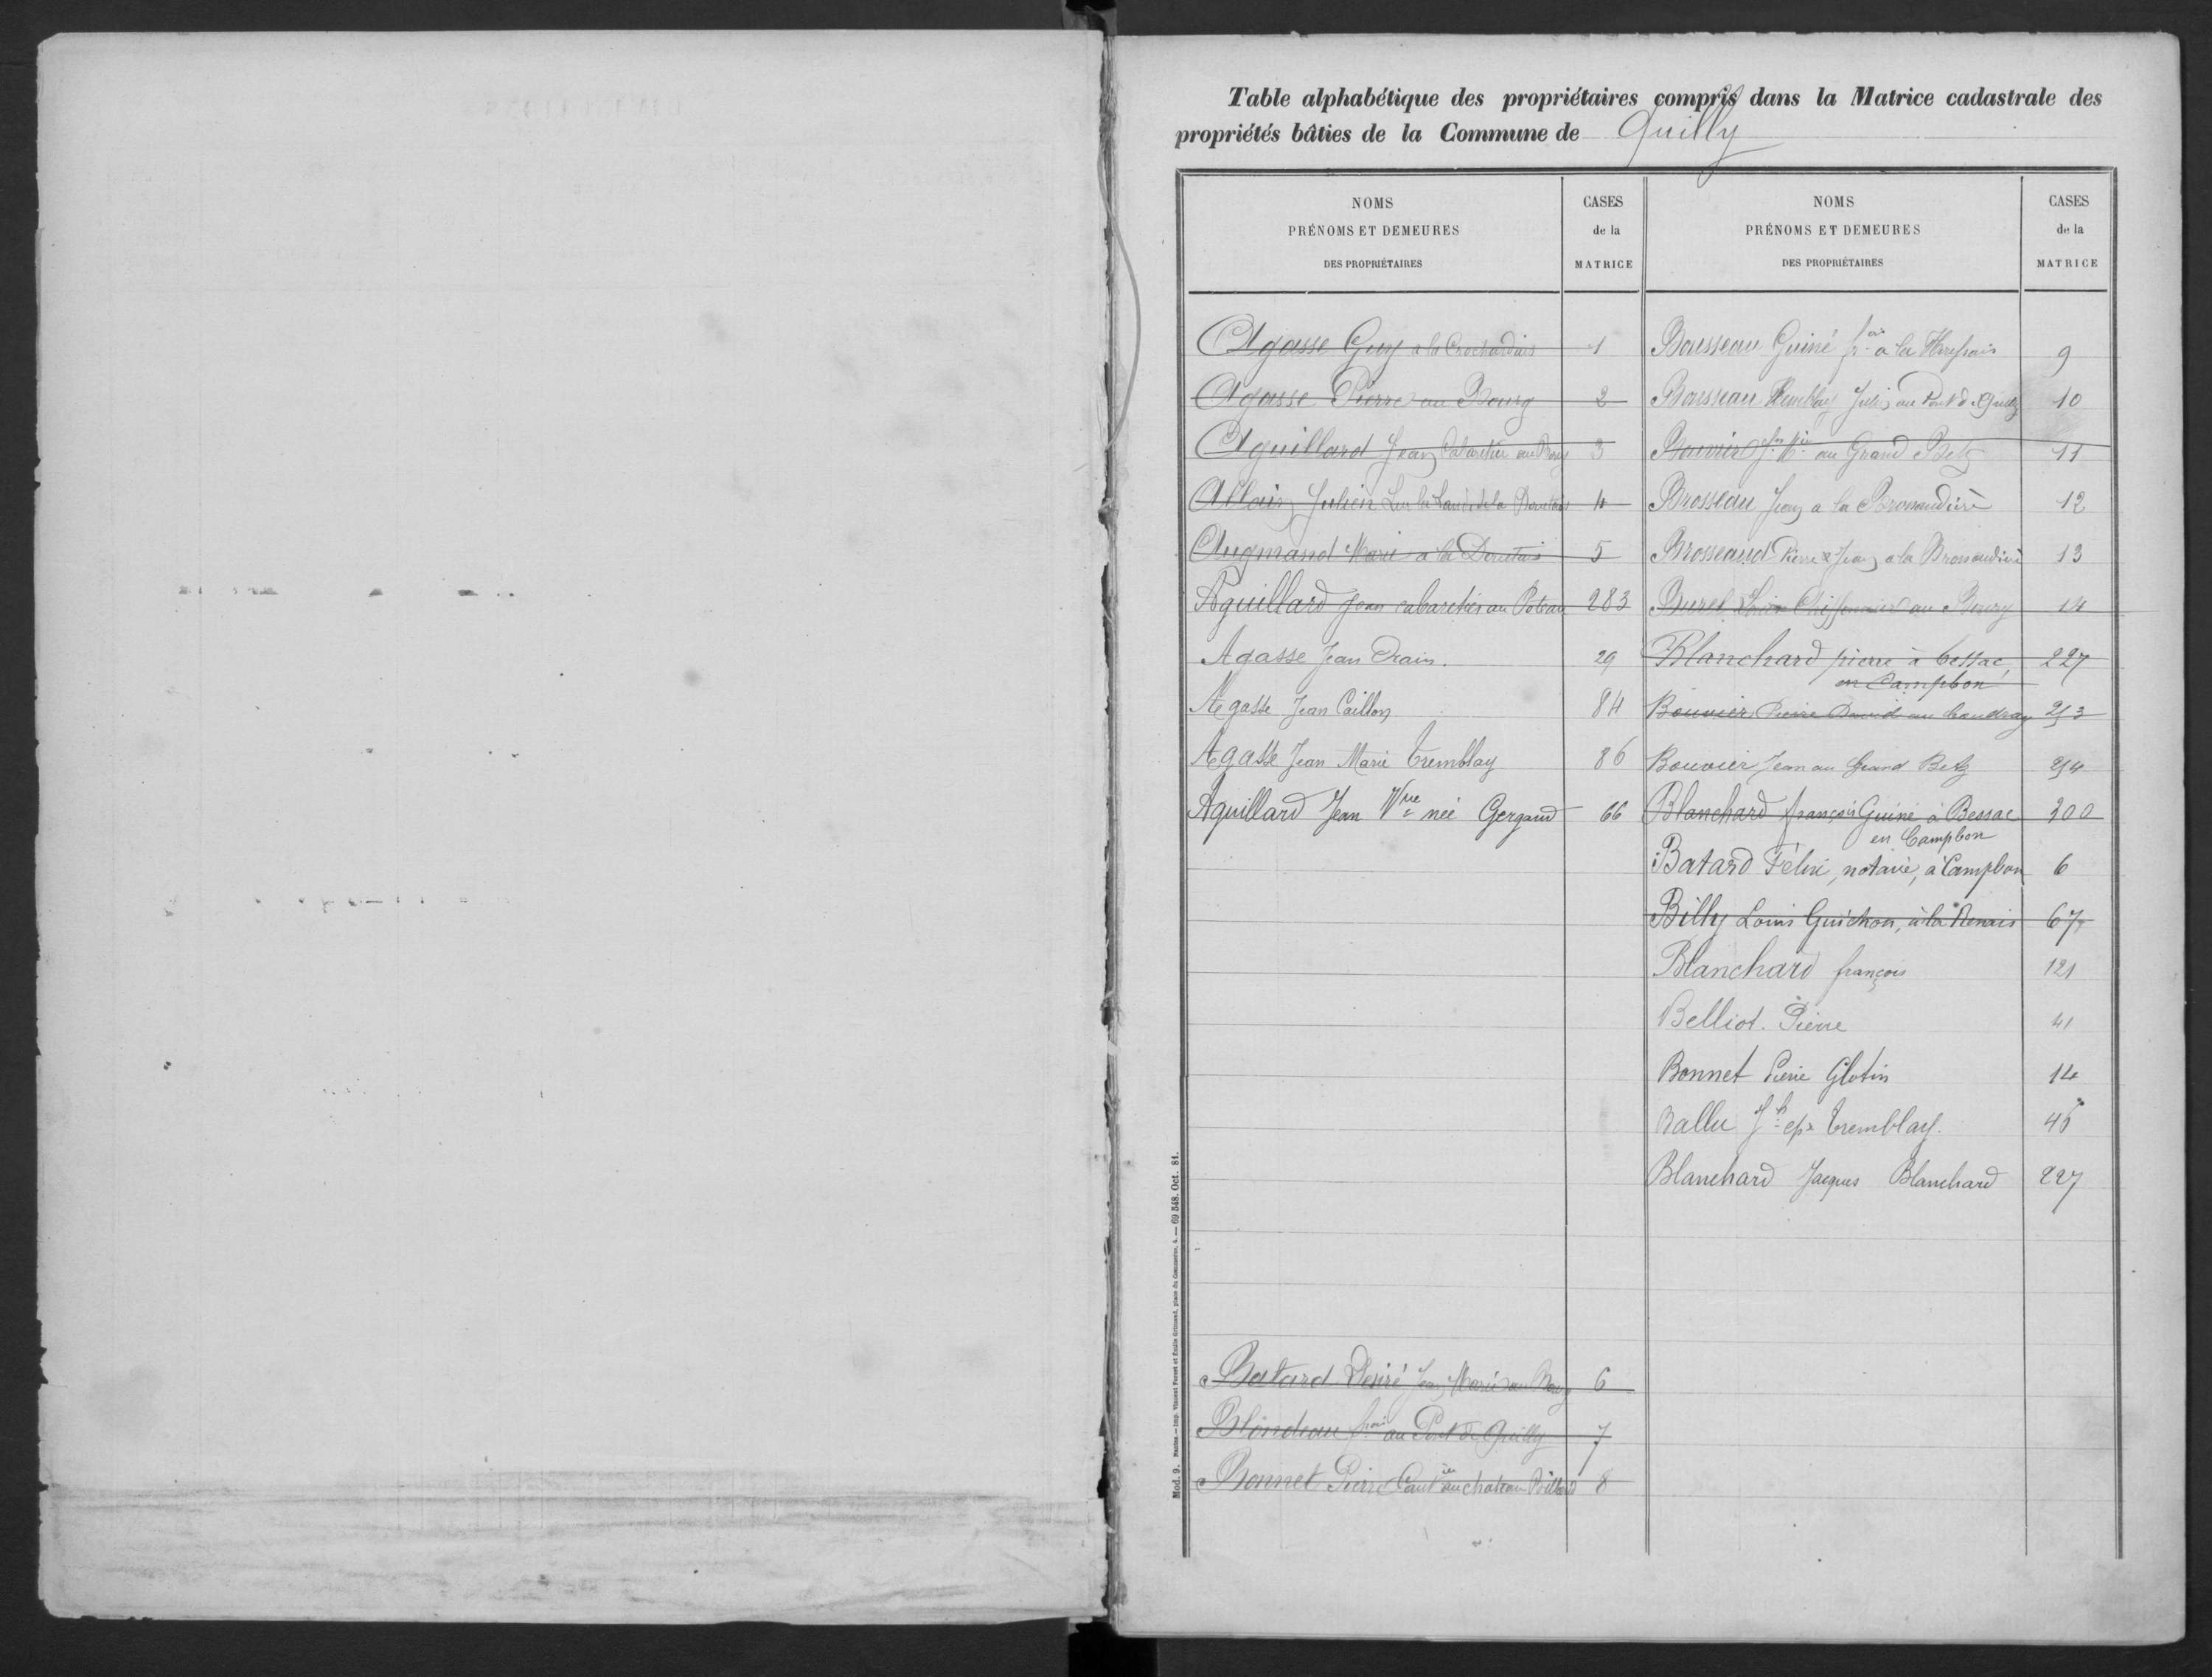 Table alphabétique des propriétaires compris dans la Matrice cadastrale des
propriétés bâties de la Commune de Quilly
NOMS
PRÉNOMS ET DEMEURES
DES PROPRIÉTAIRES
CASES
de la
MATRICE
Agasse Guy a la Crochardais 1
Agasse Pierre au Bourg 2
Aguillard Jean Cabaretier au Bourg 3
Allain Julien Sur la Lande de la 4
Augmand Marie a la 5
Aguillard Jean cabaretier au Poteau 283
Agasse Jean Drain. 29
Agasse Jean Caillon 84
Agasse Jean Marie Tremblay 86
Aguillard Jean Vve née Gergaud 66
Batard Désiré Jean Marie au Bourg 6
Blondeau frois au Pont de Quilly 7
Bonnet Pierre au chateau Billard 8
NOMS
PRÉNOMS ET DEMEURES
DES PROPRIÉTAIRES
CASES
de la
MATRICE
Bousseau Guiné a la 9
Bousseau Tremblay Julien au Pont de Quilly 10
Bouvier au Grand Betz 11
Brosseau Jean a la Brossaudière 12
Brosseaud Pierre & Jean a la Brossaudière 13
Burel au Bourg 14
Blanchard pierre à Bessac 227
en Campbon
Bouvier Pierre David au Coudray 253
Bouvier Jean au Grand Betz 254
Blanchard françois Guiné à Bessac 200
en Campbon
Batard Félix, notaire, à Campbon 6
Billy Louis Guichon, à la Renais 67
Blanchard françois 121
Belliot. Pierre 41
Bonnet Pierre Glotin 14
Ballu Jh epx Tremblay. 45
Blanchard Jacques Blanchard 227
Mod. 9. Nantes. — Imp. Vincent Forest et Émile Grimaud, place du Commerce, 4. — 69 548. Oct. 81.